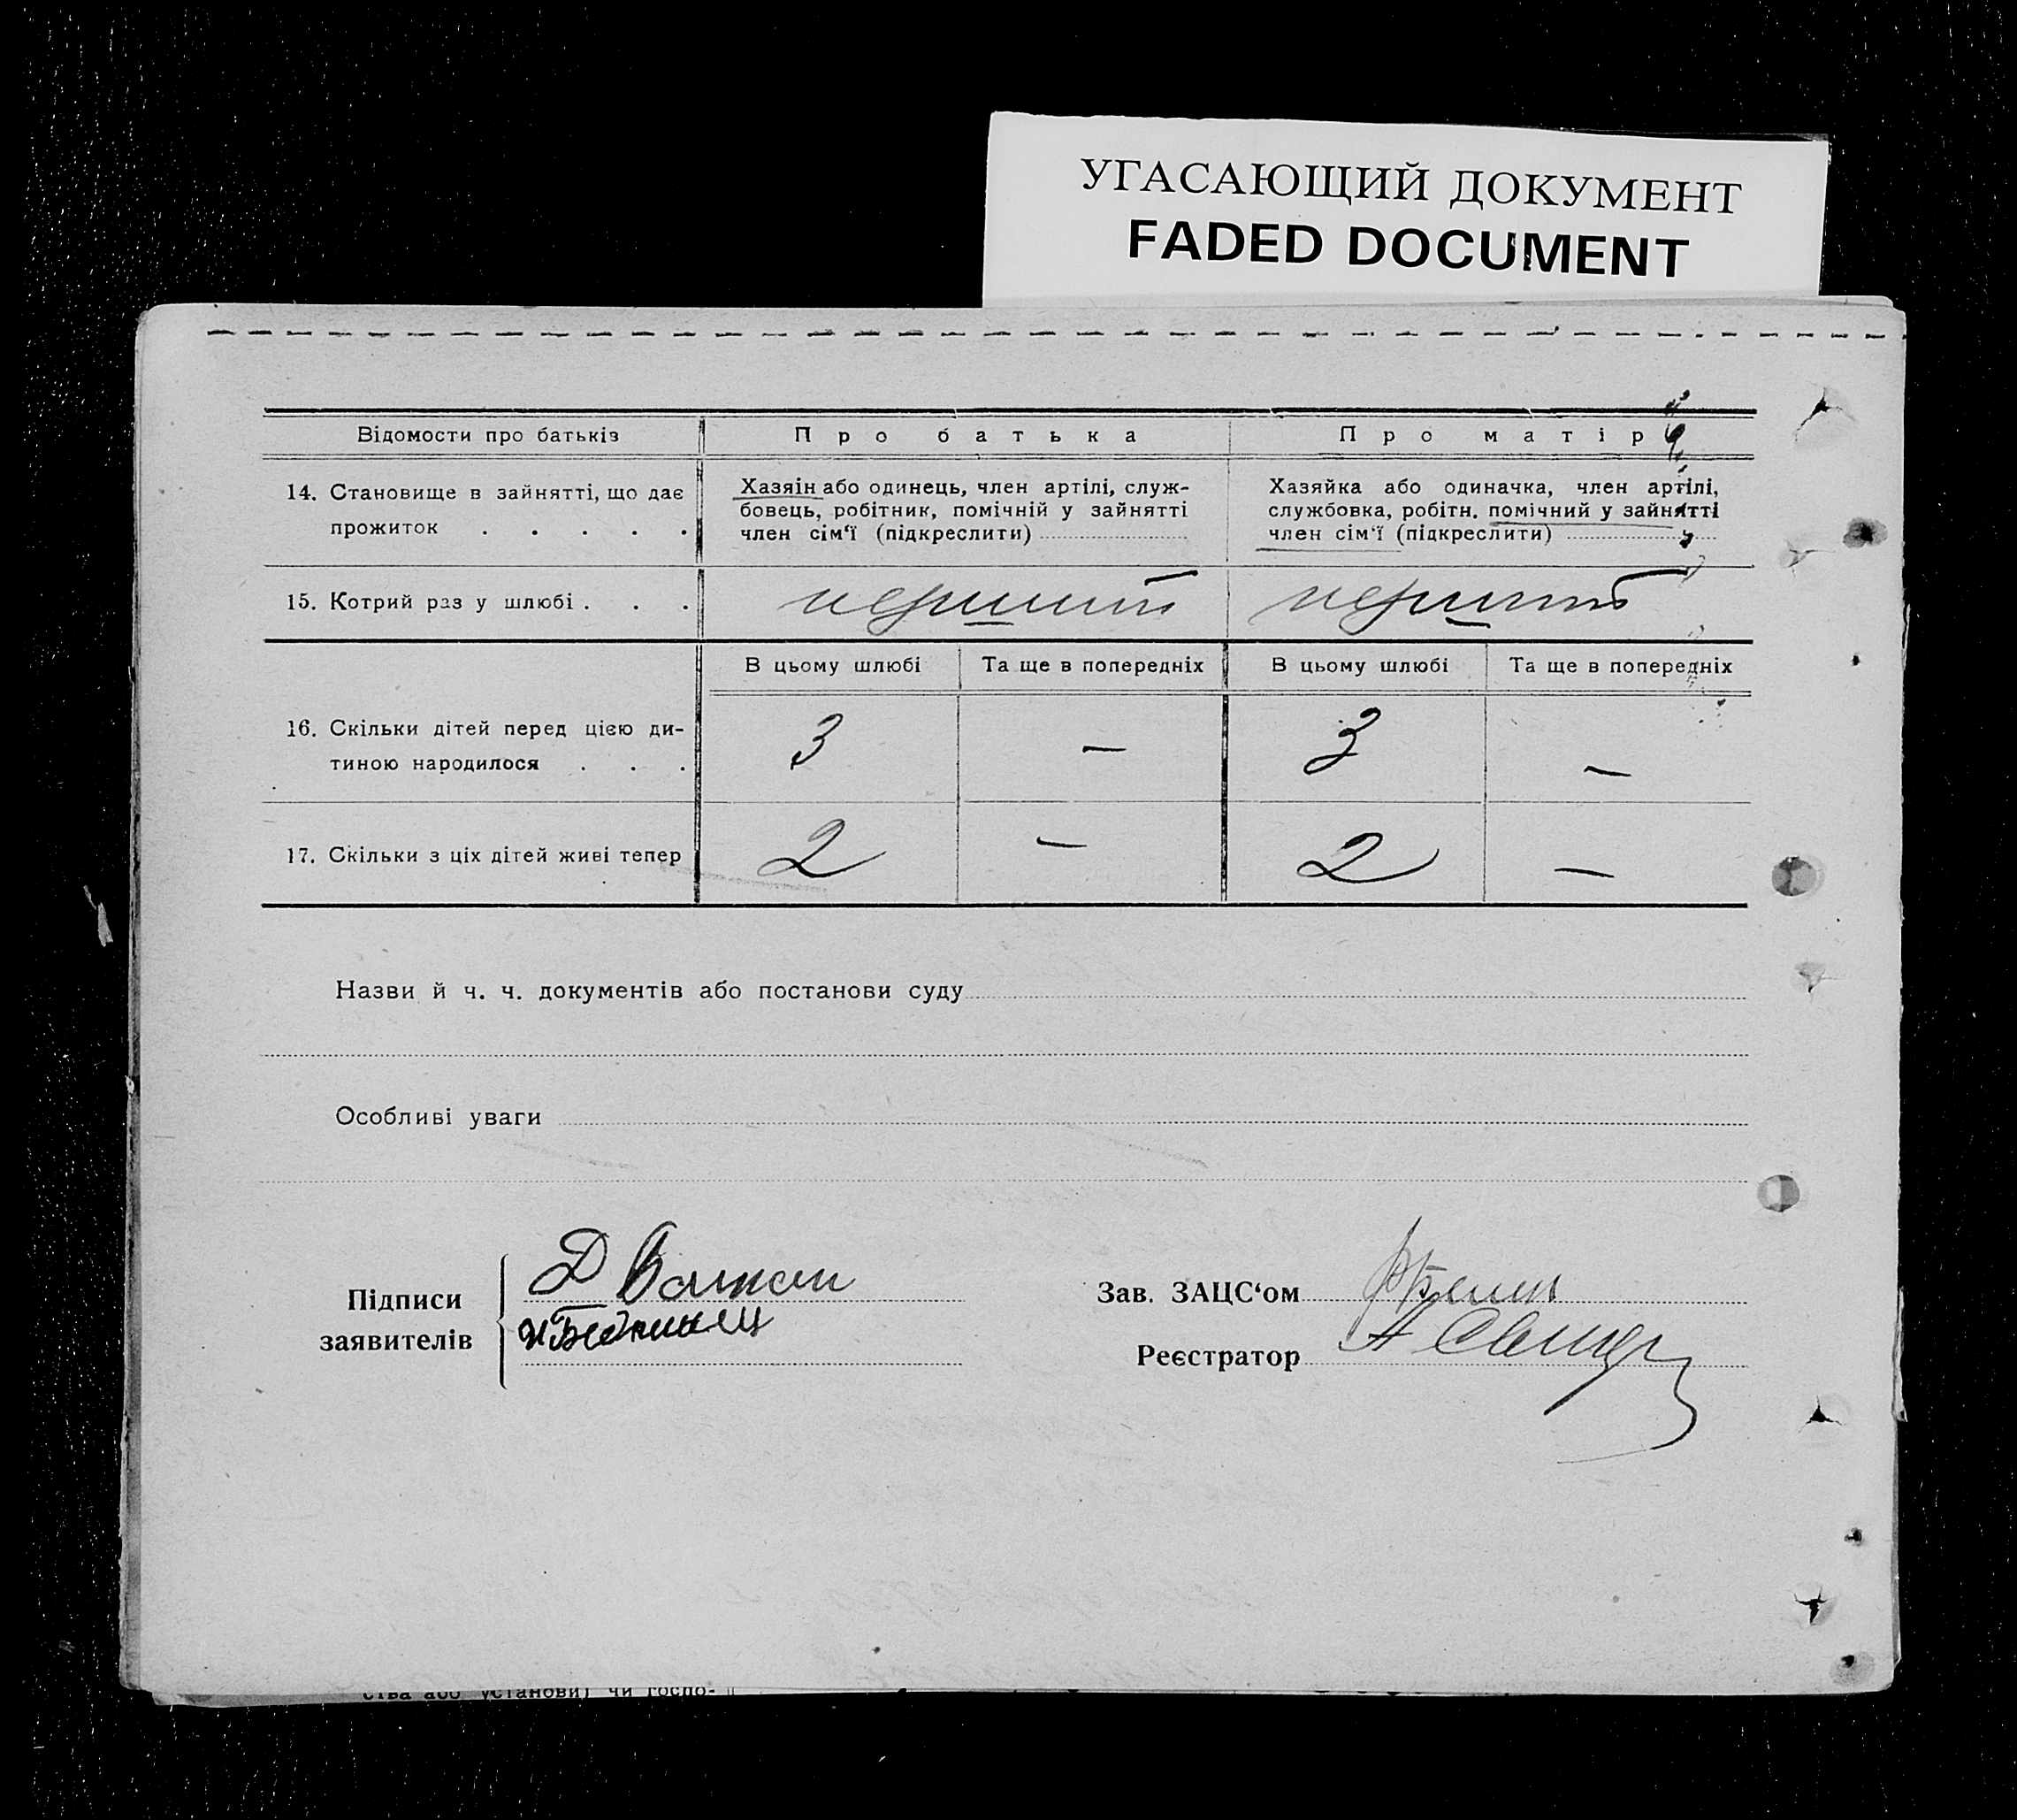 УГАСАЮЩИЙ ДОКУМЕНТ
FADED DOCUMENT
Відомости про батьків
Про батька
Про матір
14. Становище в зайнятті, що дає
прожиток . . . . .
Хазяін або одинець, член артілі, служ-
бовець, робітник, помічній у зайнятті
член сім‘ї (підкреслити)
Хазяйка або одиначка, член артілі,
службовка, робітн. помічний у зайнятті
член сім‘ї (підкреслити)
15. Котрий раз у шлюбі . . .
перший
перший
В цьому шлюбі
Та ще в попередніх
В цьому шлюбі
Та ще в попередніх
16. Скільки дітей перед цією ди-
тиною народилося . . .
3 — 3 —
17. Скільки з ціх дітей живі тепер
2 — 2 —
Назви й ч. ч. документів або постанови суду
Особливі уваги
Підписи
заявителів
Д
Зав. ЗАЦС‘ом
Реєстратор
А
ства або установи) чи госпо-